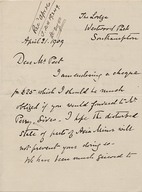 The Lodge
Westwood Park
Southampton
April 21. 1909
Dear Mr Post
I am enclosing a cheque
for £25 which I should be much
obliged if you would forward to Mr
I hope the disturbed
state of parts of Asia-Minor will
not prevent your doing so.
We have been much grieved to